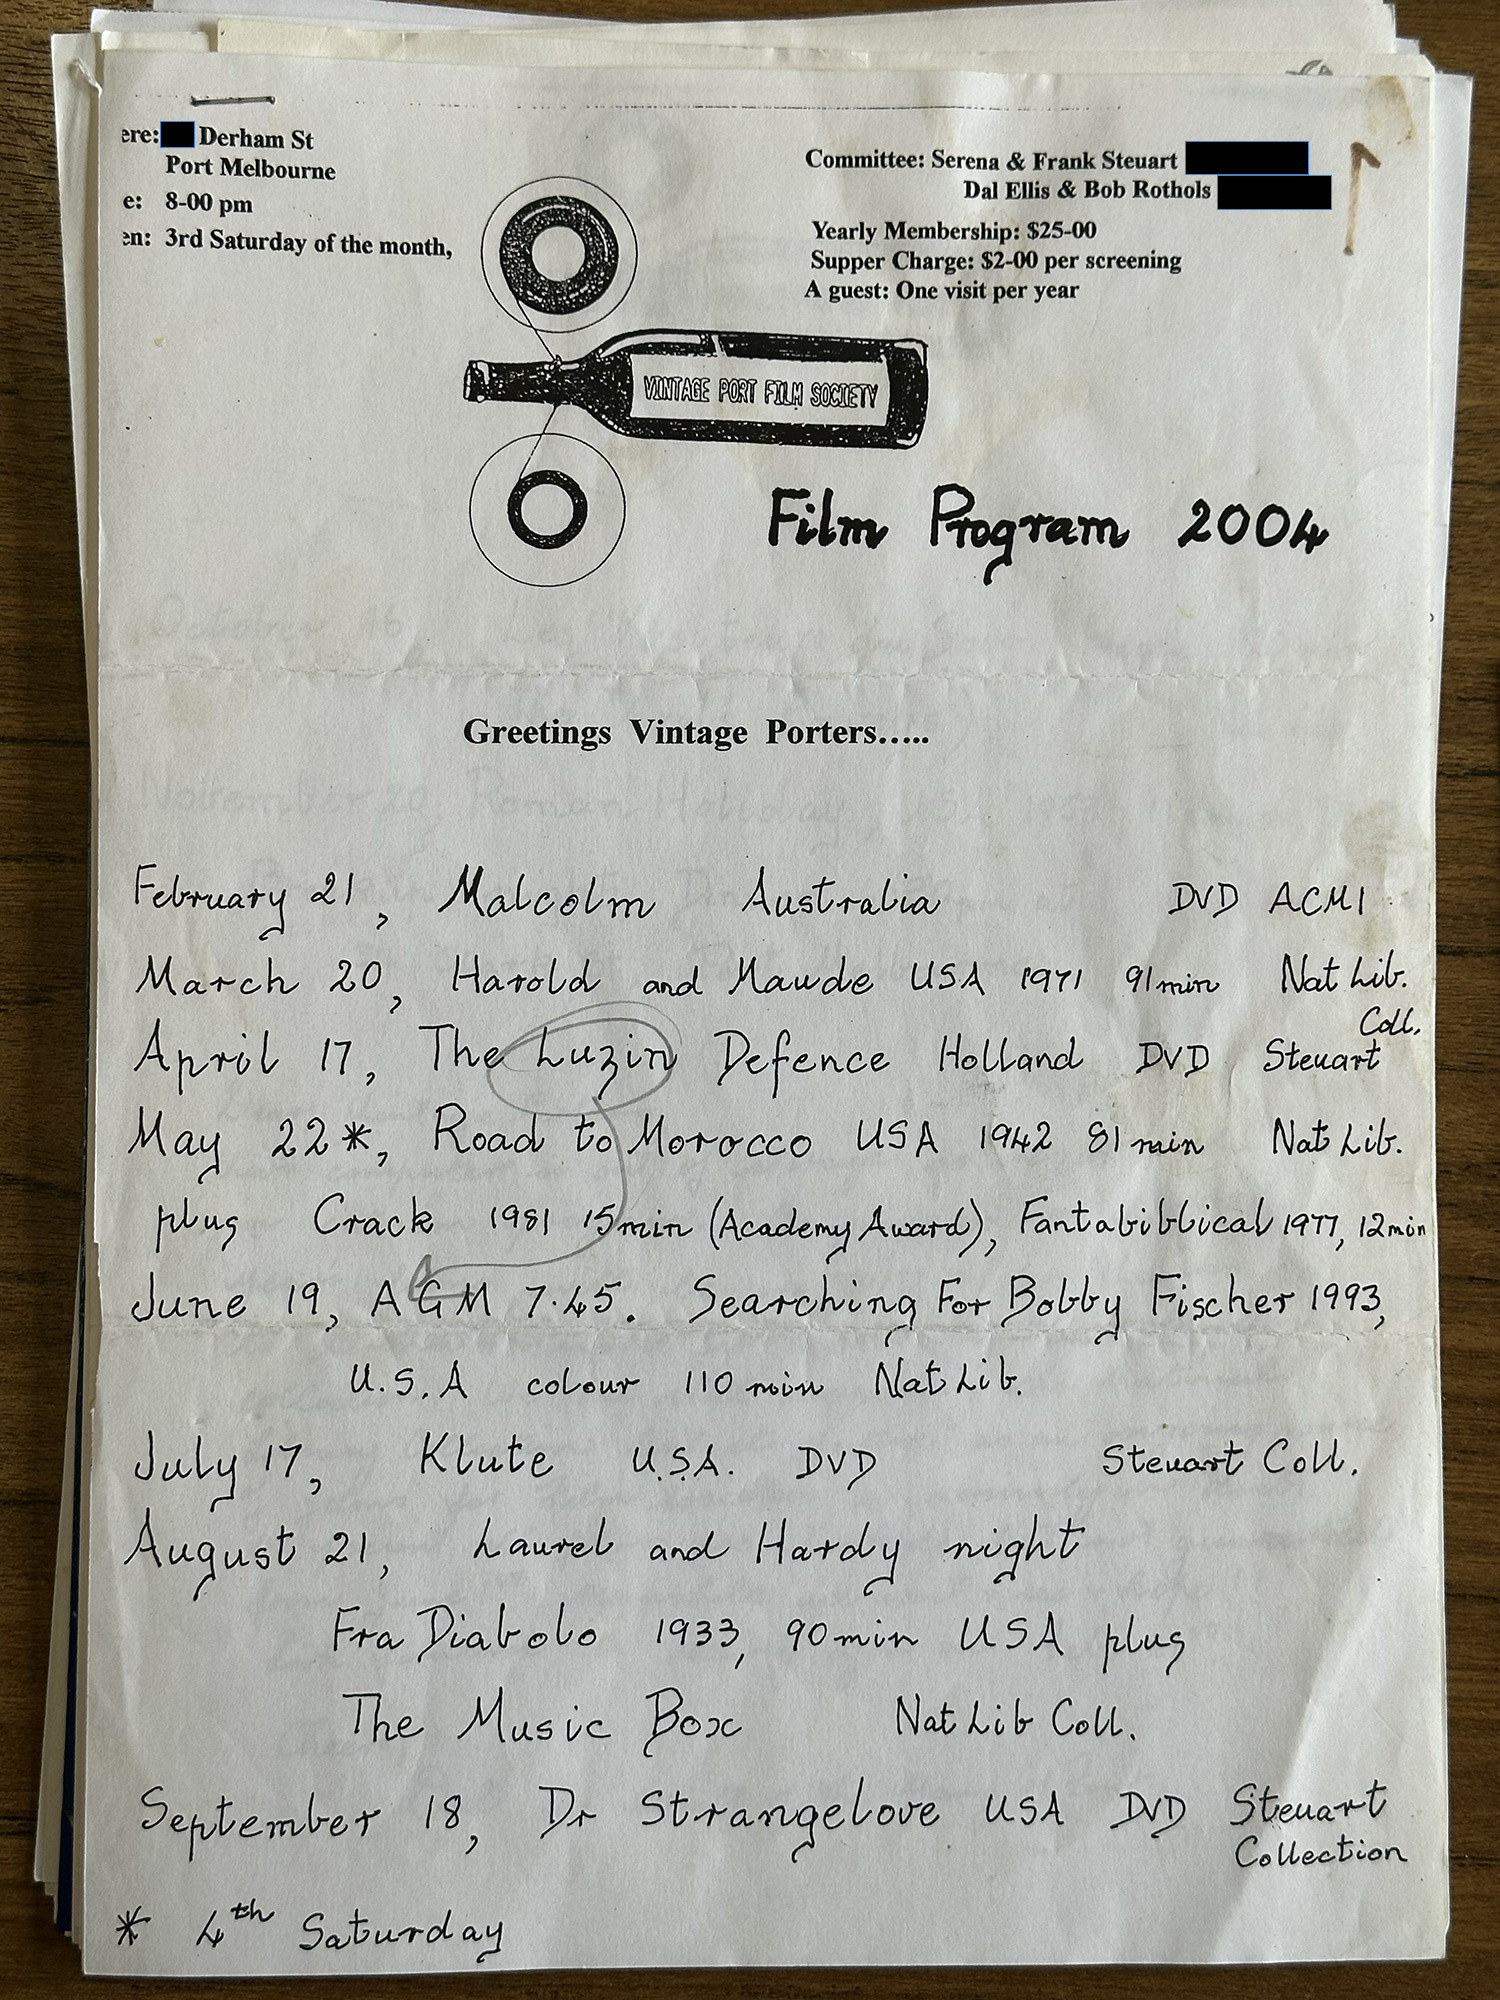 ere: Derham St
Port Melbourne
e: 8-00 pm
en: 3rd Saturday of the month,
Committee: Serena & Frank Steuart
Dal Ellis & Bob Rothols
Yearly Membership: $25-00
Supper Charge: $2-00 per screening
A guest: One visit per year
VINTAGE PORT FILM SOCIETY
Film Program 2004
Greetings Vintage Porters.....
February 21, Malcolm Australia DVD ACMI
March 20, Harold and Maude USA 1971 91min Nat Lib.
Coll.
April 17, The Luzin Defence Holland DVD Steuart
May 22*, Road to Morocco USA 1942 81min Nat Lib.
plus Crack 1981 15min (Academy Award), Fantabiblical 1977, 12min
June 19, AGM 7.45. Searching For Bobby Fischer 1993,
U.S.A colour 110 min Nat Lib.
July 17, Klute U.S.A. DVD Steuart Coll.
August 21, Laurel and Hardy night
Fra Diabolo 1933, 90min USA plus
The Music Box Nat Lib Coll.
September 18, Dr Strangelove USA DVD Steuart
Collection
* 4th Saturday